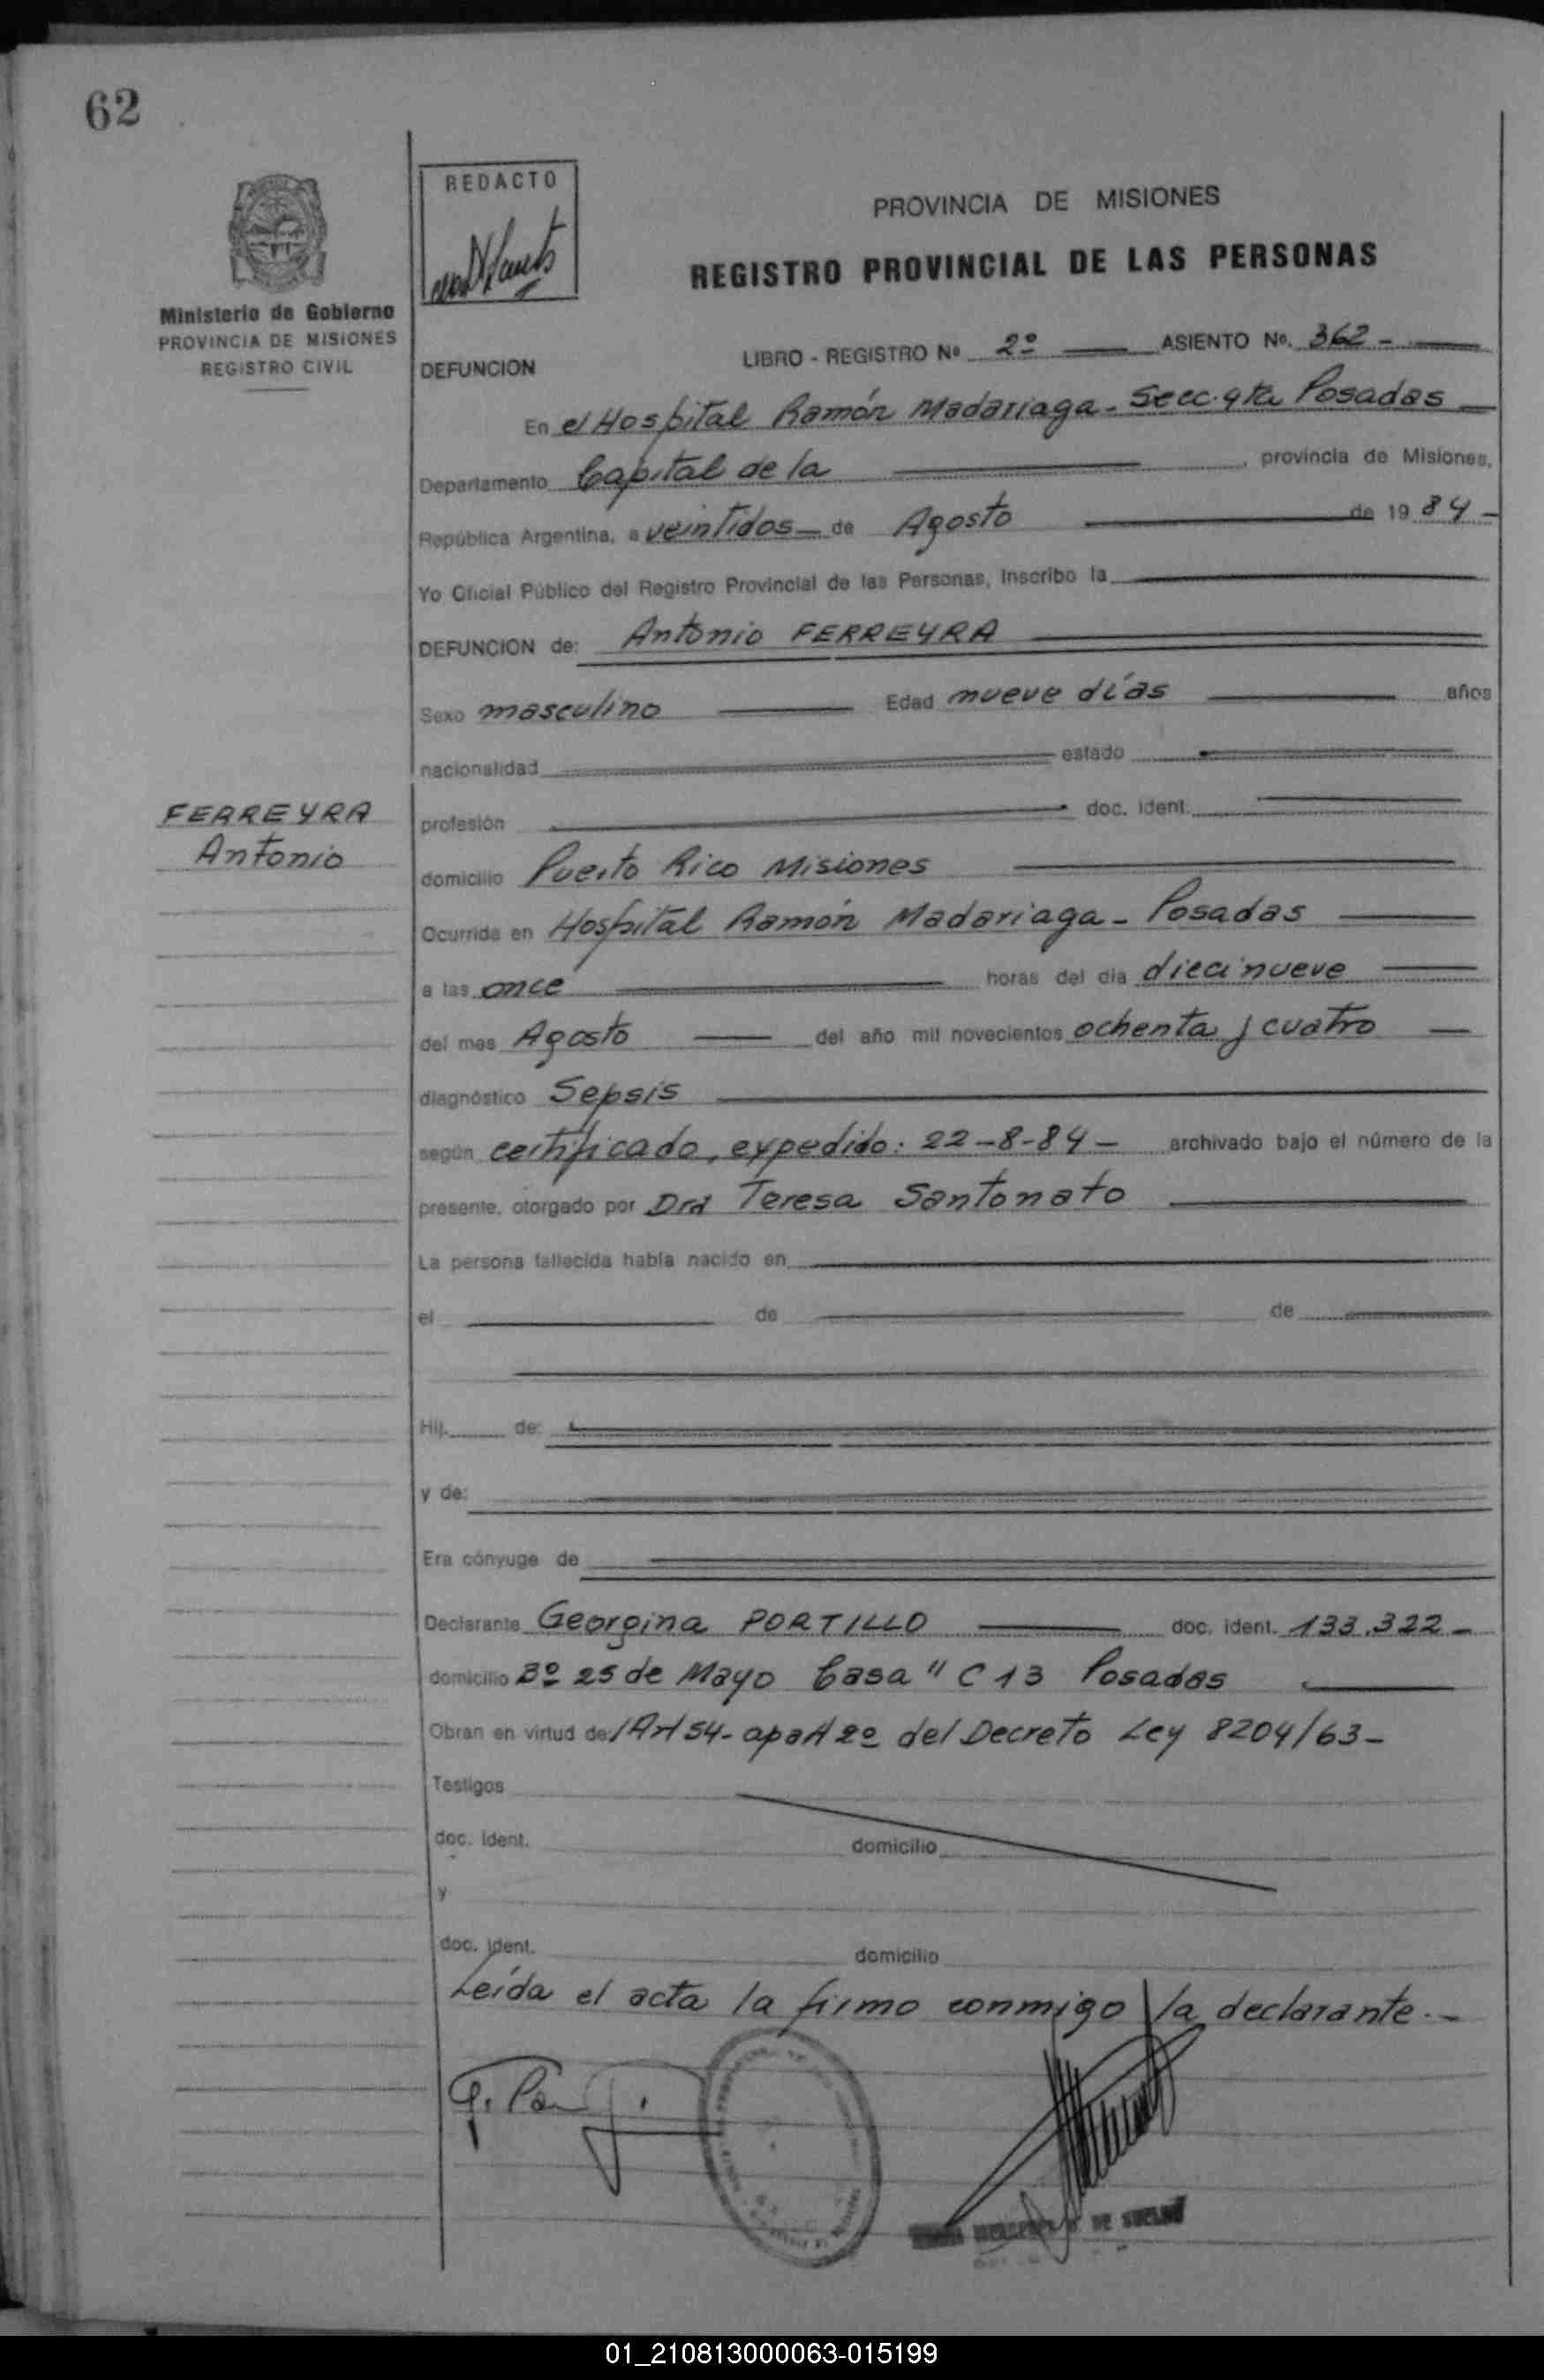 62
REDACTO
PROVINCIA DE MISIONES
REGISTRO PROVINCIAL DE LAS PERSONAS
Ministerio de Gobierno
PROVINCIA DE MISIONES
REGISTRO CIVIL
DEFUNCION
LIBRO - REGISTRO Nº 2º ASIENTO Nº. 362 -
En el Hospital Ramón Madariaga - Secc. 4ta Posadas
Departamento Capital de la , provincia de Misiones,
República Argentina, a veintidos de Agosto de 19 84 -
Yo Oficial Público del Registro Provincial de las Personas, Inscribo la
DEFUNCION de: Antonio FERREYRA
Sexo masculino Edad nueve días años
nacionalidad estado
FERREYRA
Antonio
profesión doc. ident.
domicilio Puerto Rico Misiones
Ocurrida en Hospital Ramón Madariaga - Posadas
a las once horas del día diecinueve
del mes Agosto del año mil novecientos ochenta y cuatro
diagnóstico Sepsis
según certificado, expedido: 22-8-84 - archivado bajo el número de la
presente, otorgado por Dra Teresa Santonato
La persona fallecida había nacido en
el de de
Hij. de:
y de:
Era cónyuge de
Declarante Georgina PORTILLO doc. ident. 133.322 -
domicilio Bº 25 de Mayo Casa " C 13 Posadas
Obran en virtud de: Art 54 - apart 2º del Decreto Ley 8204/63 -
Testigos
doc. ident. domicilio
y
doc. ident. domicilio
Leída el acta la firmo conmigo la declarante. -
DE
01_210813000063-015199